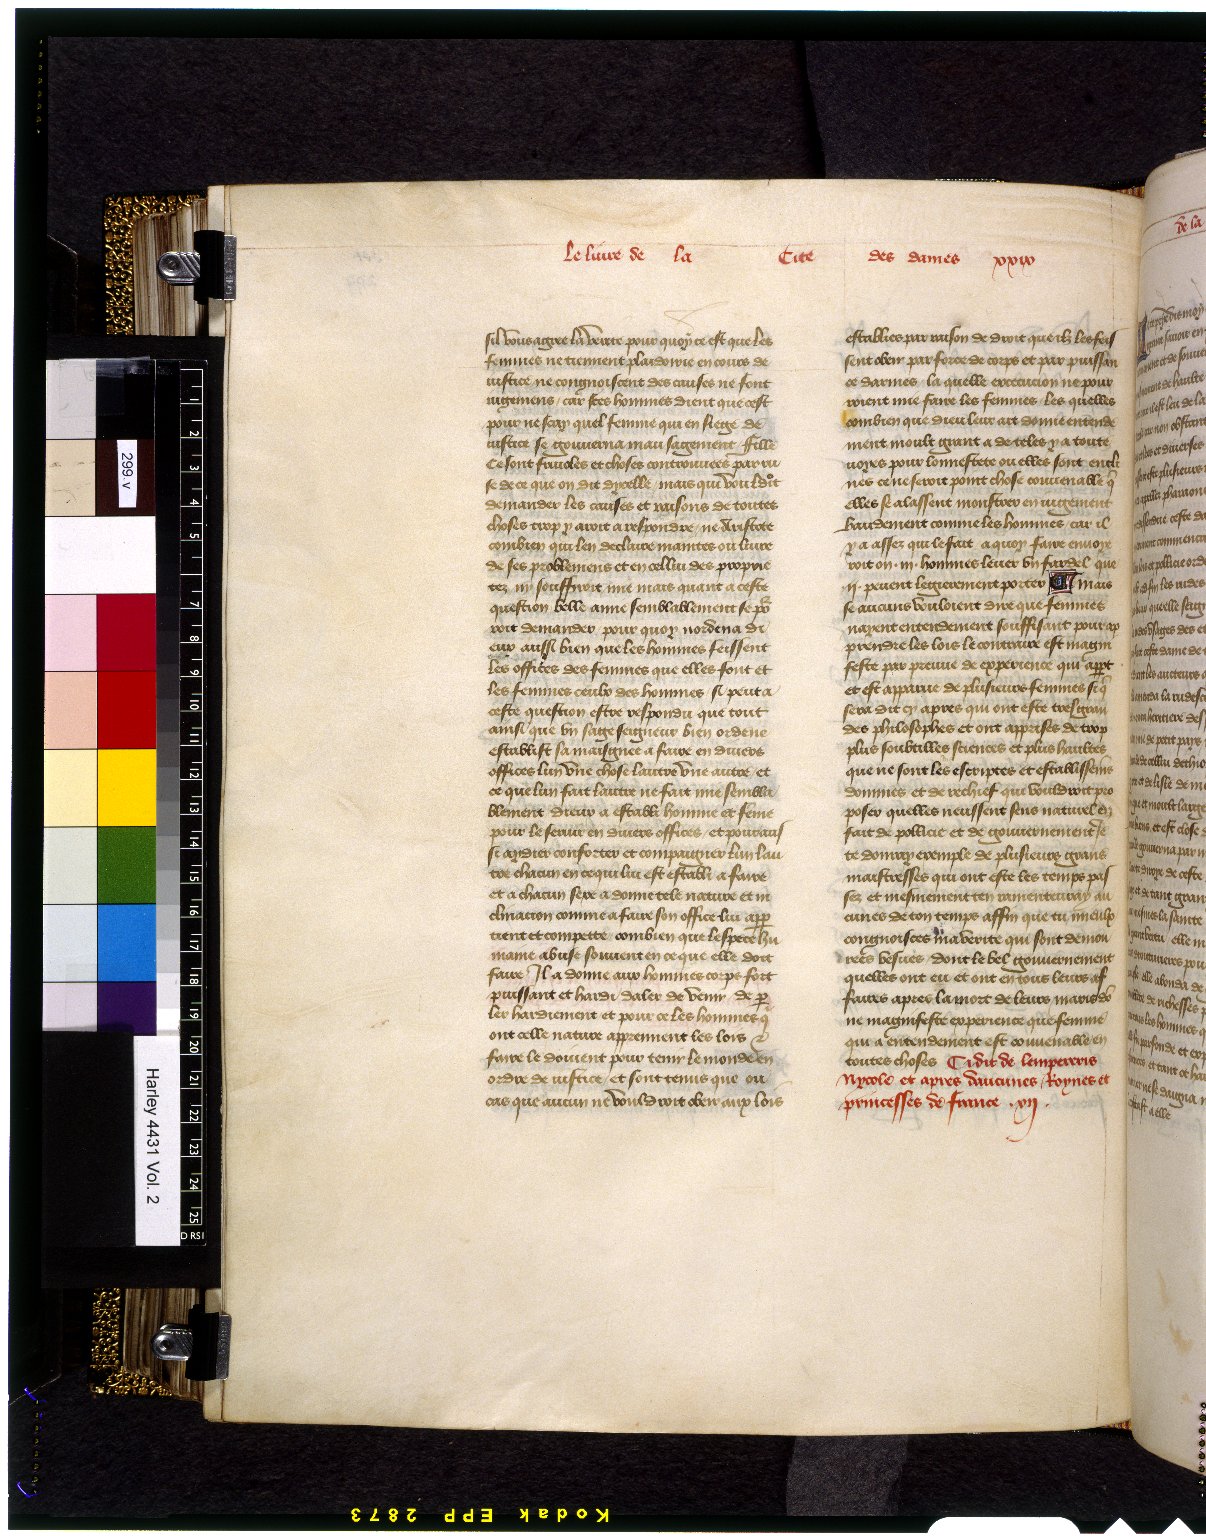 Le livre de la Cite des dames xxiv
sil vous agree la verite pour quoy ce est que les
femmes ne tiennent plaidoirie en cours de
iustice ne congnoiscent des causes ne font
iugemens / car sces hommes dient que cest
pour ne scay quel femme qui en siege de
iustice se gouverna mau sagement / fille
Ce sont fravoles et choses controuvees par ru
se de ce que on dit dycelle / mais qui vouldroit
demander les causes et raisons de toutes
choses trop y avoit a respondre / ne Aristote
combien quil en declaire maintes ou livre
de ses problemens et en cellui des proprie
tez ny souffiroit mie mais quant a ceste
question belle amie semblablement se por
roit demander pour quoy nordena di
eux aussi bien que les hommes feissent
les offices des femmes que elles font et
les femmes ceulx des hommes si peut a
ceste question estre respondu que tout
ainsi que un saige seigneur bien ordene
establist sa maisgnee a faire en divers
offices lun une chose lautre une autre et
ce que lun fait lautre ne fait mie sembla
blement dieux a establi homme et feme
pour le servir en divers offices / et pour aussi
si aydier conforter et compaignier lun lau
tre chacun en ce qui lui est establi a faire
et a chacun sexe a donne tele nature et in
clinacion comme a faire son office lui app
tient et compette / combien que lespece hu
maine abuse souvent en ce que elle doit
faire Il a donne aux hommes corps fort
puissant et hardi daler de venir de p
ler hardiement et pour ce les hommes q
ont celle nature apprennent les lois &
faire le doivent pour tenir le monde en
ordre de iustice / et sont tenus que ou
cas que aucun ne vouldroit obeir aux lois
establies par raison de droit que ilz les feis
sent obeir par force de corps et par puissan
ce darmes / la quelle excecucion ne pour
roient mie faire les femmes / les quelles
combien que dieu leur ait donne entende
ment moult grant a de teles y a toute
voyes pour lonnestete ou elles sont encli
nes ce ne seroit point chose couvenable q
elles se alassent monstrer en iugement
baudement comme les hommes / car il
y a assez qui le fait a quoy faire envoye
roit on .iii. hommes lever un fardel que
.ii. peuent legierement porter mais
se aucuns vouloient dire que femmes
nayent entendement souffisant pour ap
prendre les lois le contraire est magni
feste par preuve de experience qui appt
et est apparue de plusieurs femmes si q
sera dit cy apres qui ont este tres grans
des philosophes et ont apprises de trop
plus soubtilles sciences et plus haultes
que ne sont lois escriptes et establissemens
dommes et de rechief qui vouldroit pro
poser quelles neussent sens naturel en
fait de pollicie et de gouvernement Je
te donray exemple de plusieurs grans
maistresses qui ont este les temps pas
sez et mesmement ten ramentevray au
cunes de ton temps affin que tu mieulx
congnoisces ma verite qui sont demou
rees vesves / dont le bel gouvernement
quelles ont eu et ont en tous leurs af
faires apres la mort de leurs maris do
ne magnifeste experience que femme
qui a entendement est couvenable en
toutes choses Ci dit de lempereris
Nycole et apres daucunes Roynes et
princesses de france .xiii.
de la
299.v
Harley 4431 Vol. 2
Kodak EPP 2873